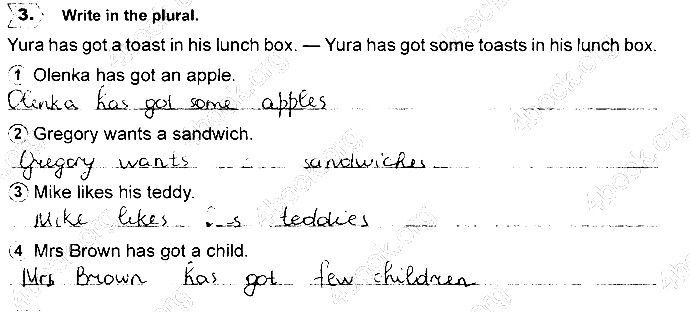 3. Write in the plural.
Yura has got a toast in his lunch box. — Yura has got some toasts in his lunch box.
1 Olenka has got an apple.
Olenka has got some apples
2 Gregory wants a sandwich.
Gregory wants sandwiches
3 Mike likes his teddy.
Mike likes teddies
4 Mrs Brown has got a child.
Mrs Brown has got few children
4book.org